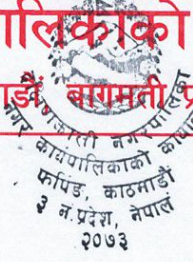 ालिकाको
डौं, बागमती प्र
दक्षिणकाली नगरपालिका
नगर कार्यपालिकाको कार्यालय
फर्पिङ, काठमाडौं
३ नं. प्रदेश, नेपाल
२०७३